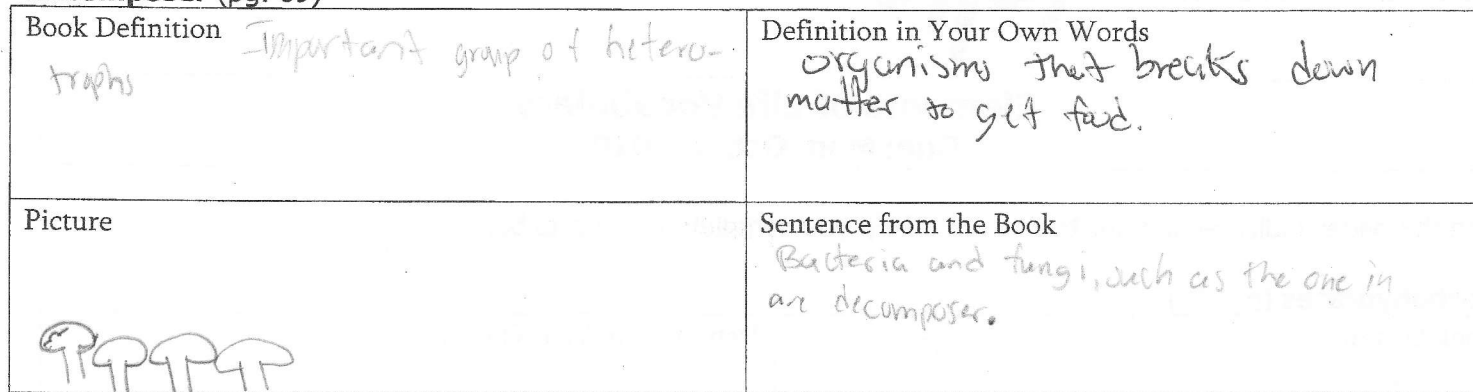 Book Definition Important group of hetero-
trophs
Definition in Your Own Words
organisms that breaks down
matter to get food.
Picture
Sentence from the Book
Bacteria and fungi, such as the one in
are decomposer.